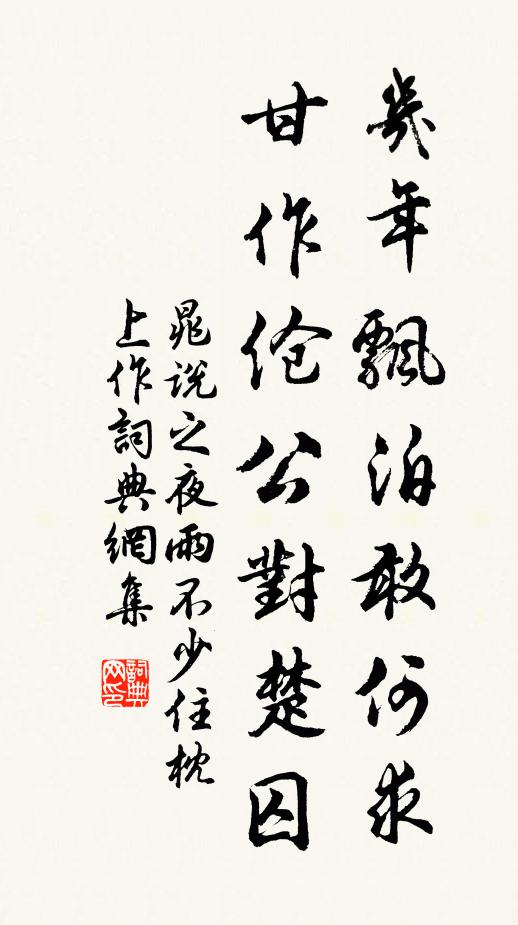 幾年飄泊敢何求
甘作伧公對楚囚
晁説之夜雨不少住枕
上作詞典網集
詞典網印